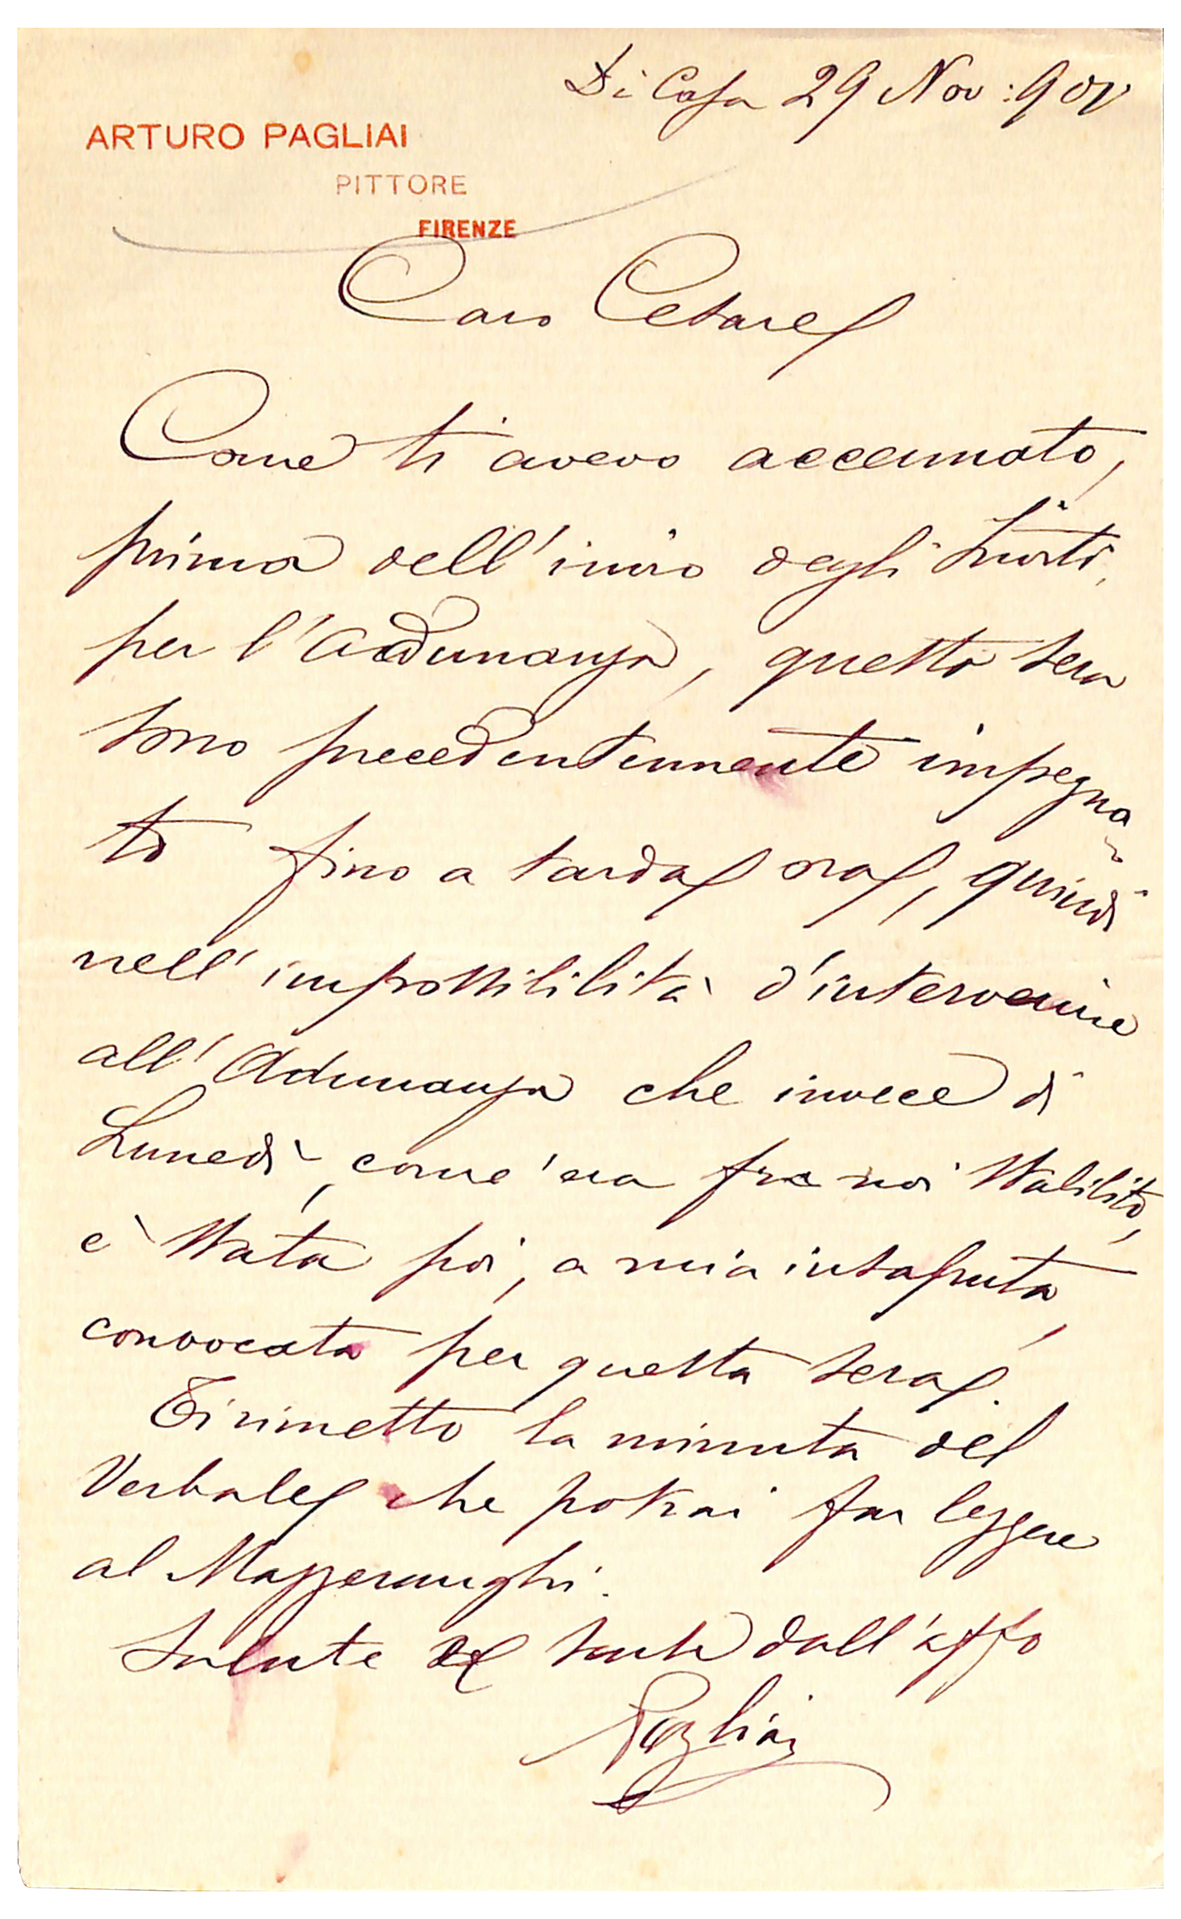 Di Casa 29 Nov: 90
ARTURO PAGLIAI
PITTORE
FIRENZE
Caro Cesare
Come ti avevo accennato,
prima dell'invio degli Inviti,
per l'Adunanza, questa sera
sono precedentemente impegna-
to fino a tarda ora, quindi
nell'impossibilità d'intervenire
all'Adunanza che invece di
Lunedì, come'era fra noi stabilito,
è stata poi, a mia insaputa,
convocata per questa sera.
Ti rimetto la minuta del
Verbale che potrai far leggere
al Mazzeranghi.
Salute dall'affo
Pagliai